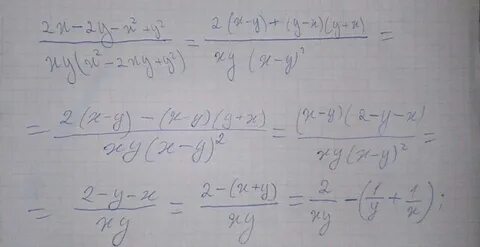 (2x-2y-x²+y²)/(xy(x²-2xy+y²)) = (2(x-y)+(y-x)(y+x))/(xy(x-y)²) =
= (2(x-y)-(x-y)(y+x))/(xy(x-y)²) = ((x-y)(2-y-x))/(xy(x-y)²) =
= (2-y-x)/(xy) = (2-(x+y))/(xy) = 2/(xy) - (1/y + 1/x);